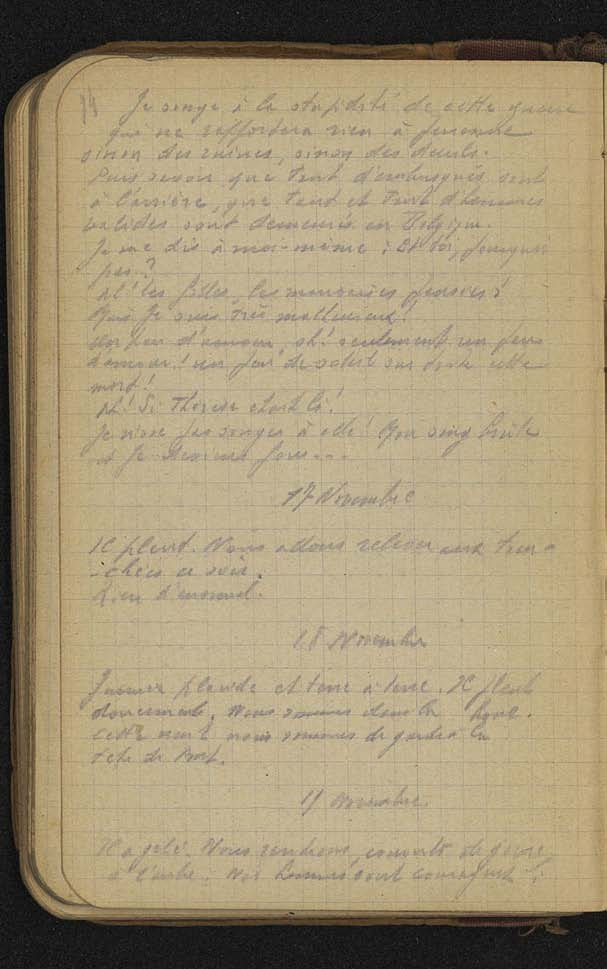 14
Je songe à la stupidité de cette guerre
qui ne rapportera rien à personne
sinon des ruines, sinon des deuils.
Puis savoir que tant d'embusqués sont
à l'arrière, que tant et tant d'hommes
valides sont demeurés en Belgique.
Je me dis à moi-même : Et toi, pourquoi
pas ?
Ah! les folles, les mauvaises pensées!
Que je suis très malheureux!
Un peu d'amour, oh! seulement un peu
d'amour! un peu de soleil sur toute cette
mort!
Ah! Si Thérèse était là!
Je n'ose pas songer à elle! Mon sang brûle
et je deviens fou...
17 Novembre
Il pleut. Nous allons relever aux tran-
-chées ce soir.
Rien d'anormal.
18 Novembre
Journée placide et terre à terre. Il pleut
doucement. Nous sommes dans la boue.
Cette nuit nous sommes de garde à la
tête de Pont.
19 Novembre
Il a gelé. Nous rentrons, couverts de givre
à l'aube. Nos hommes sont